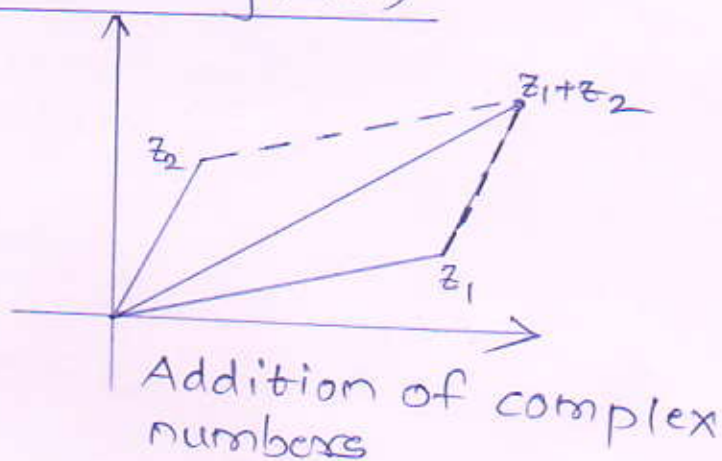 z₁+z₂
z₂
z₁
Addition of complex
numbers